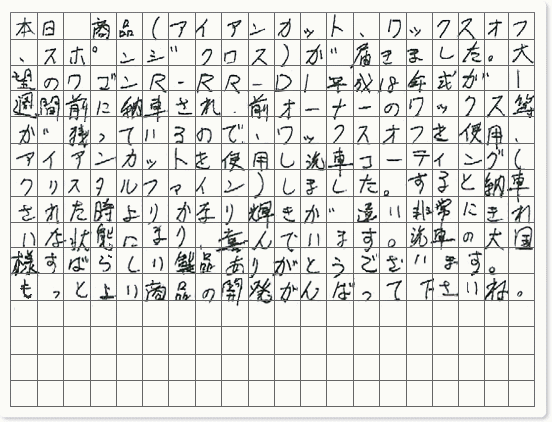 本日 商品(アイアンカット、ワックスオフ
、スポンジクロス)が届きました。大
望のワゴンR-RR-DI平成18年式が一
週間前に納車され、前オーナーのワックス等
が残っているので、ワックスオフを使用、
アイアンカットを使用し洗車コーティング(
クリスタルファイン)しました。すると納車
された時よりかなり輝きが違い非常にきれ
いな状態になり、喜んでいます。洗車の大国
様すばらしい製品ありがとうございます。
もっとよい商品の開発がんばって下さいね。